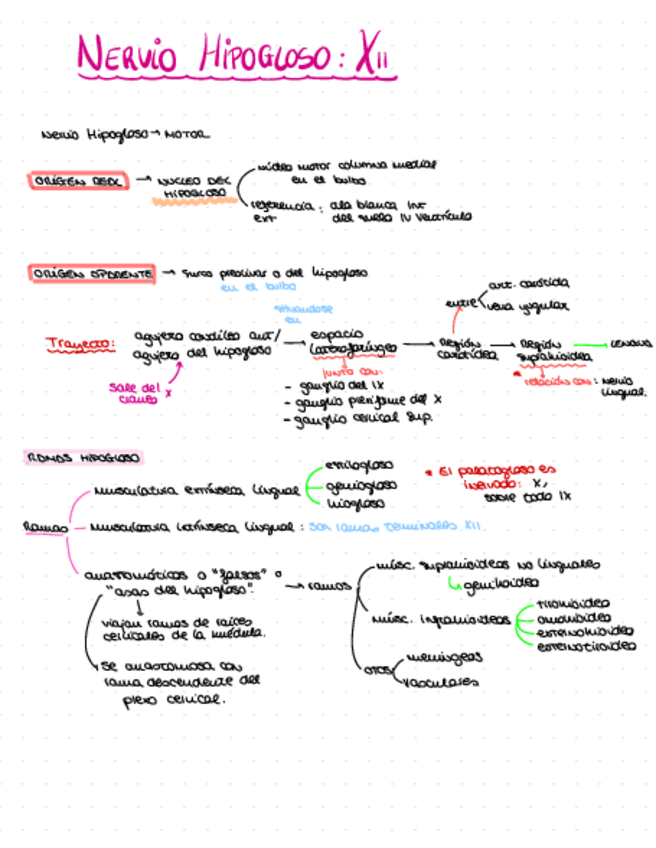 NERVIO HIPOGLOSO: XII
Nervio Hipogloso → MOTOR
ORIGEN REAL → NUCLEO DEL HIPOGLOSO
núcleo motor columna medial
en el bulbo
referencia: ala blanca int
ext del suelo IV ventrículo
ORIGEN APARENTE → surco preolivar o del hipogloso
en el bulbo
situandose
en
Trayecto: agujero condíleo ant/
agujero del hipogloso
→ espacio
laterofaríngeo
→ REGIÓN
carotídea
→ REGIÓN
suprahioidea
LENGUA
entre
art. carótida
vena yugular
Sale del
cráneo x
JUNTO CON:
- ganglio del IX
- ganglio plexiforme del X
- ganglio cervical sup.
* relación con: nervio
lingual.
RAMAS HIPOGLOSO
Ramas
Musculatura extrínseca lingual
estilogloso
geniogloso
hiogloso
* El palatogloso es
inervado: X,
sobre todo IX
Musculatura intrínseca lingual: son ramas terminales XII.
anastomóticos o "falsos" o
"asas del hipogloso".
→ ramos
viajan ramas de raíces
cervicales de la médula.
se anastomosa con
rama descendente del
plexo cervical.
músc. suprahioideos no linguales
↳ genihioideo
músc. infrahioideos
tirohioideo
omohioideo
esternohioideo
esternotiroideo
otros
meníngeas
vasculares